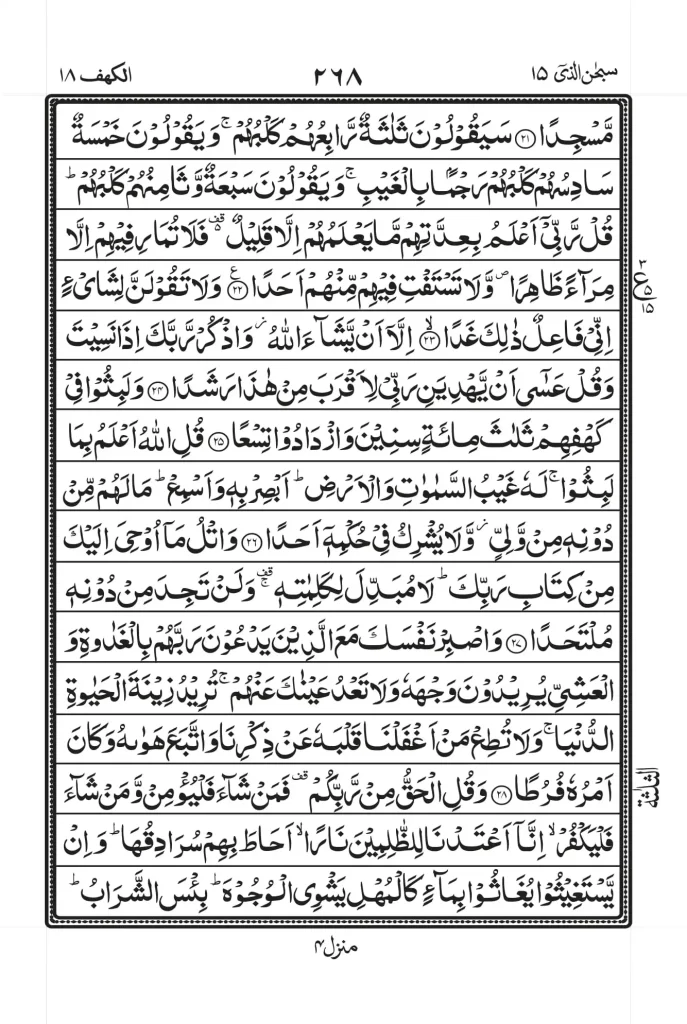 سبحٰن الذیٓ ۱۵
۲۶۸
الکهف ۱۸
مَّسْجِدًا ﴿۲۱﴾ سَيَقُوْلُوْنَ ثَلٰثَةٌ رَّابِعُهُمْ كَلْبُهُمْ ۚ وَيَقُوْلُوْنَ خَمْسَةٌ
سَادِسُهُمْ كَلْبُهُمْ رَجْمًۢا بِالْغَيْبِ ۚ وَيَقُوْلُوْنَ سَبْعَةٌ وَّثَامِنُهُمْ كَلْبُهُمْ ؕ
قُلْ رَّبِّيْٓ اَعْلَمُ بِعِدَّتِهِمْ مَّا يَعْلَمُهُمْ اِلَّا قَلِيْلٌ ۫ فَلَا تُمَارِ فِيْهِمْ اِلَّا
مِرَآءً ظَاهِرًا ۪ وَّلَا تَسْتَفْتِ فِيْهِمْ مِّنْهُمْ اَحَدًا ﴿۲۲﴾ وَلَا تَقُوْلَنَّ لِشَایْءٍ
اِنِّيْ فَاعِلٌ ذٰلِكَ غَدًا ﴿۲۳﴾ اِلَّآ اَنْ يَّشَآءَ اللّٰهُ ۫ وَاذْكُرْ رَّبَّكَ اِذَا نَسِيْتَ
وَقُلْ عَسٰٓى اَنْ يَّهْدِيَنِ رَبِّيْ لِاَقْرَبَ مِنْ هٰذَا رَشَدًا ﴿۲۴﴾ وَلَبِثُوْا فِيْ
كَهْفِهِمْ ثَلٰثَ مِائَةٍ سِنِيْنَ وَازْدَادُوْا تِسْعًا ﴿۲۵﴾ قُلِ اللّٰهُ اَعْلَمُ بِمَا
لَبِثُوْا ۚ لَهٗ غَيْبُ السَّمٰوٰتِ وَالْاَرْضِ ؕ اَبْصِرْ بِهٖ وَاَسْمِعْ ؕ مَا لَهُمْ مِّنْ
دُوْنِهٖ مِنْ وَّلِيٍّ ۫ وَّلَا يُشْرِكُ فِيْ حُكْمِهٖٓ اَحَدًا ﴿۲۶﴾ وَاتْلُ مَآ اُوْحِيَ اِلَيْكَ
مِنْ كِتَابِ رَبِّكَ ؕ لَا مُبَدِّلَ لِكَلِمٰتِهٖ ۚ۫ وَلَنْ تَجِدَ مِنْ دُوْنِهٖ
مُلْتَحَدًا ﴿۲۷﴾ وَاصْبِرْ نَفْسَكَ مَعَ الَّذِيْنَ يَدْعُوْنَ رَبَّهُمْ بِالْغَدٰوةِ وَ
الْعَشِيِّ يُرِيْدُوْنَ وَجْهَهٗ وَلَا تَعْدُ عَيْنٰكَ عَنْهُمْ ۚ تُرِيْدُ زِيْنَةَ الْحَيٰوةِ
الدُّنْيَا ۚ وَلَا تُطِعْ مَنْ اَغْفَلْنَا قَلْبَهٗ عَنْ ذِكْرِنَا وَاتَّبَعَ هَوٰىهُ وَكَانَ
اَمْرُهٗ فُرُطًا ﴿۲۸﴾ وَقُلِ الْحَقُّ مِنْ رَّبِّكُمْ ۫ فَمَنْ شَآءَ فَلْيُؤْمِنْ وَّمَنْ شَآءَ
فَلْيَكْفُرْ ۙ اِنَّآ اَعْتَدْنَا لِلظّٰلِمِيْنَ نَارًا ۙ اَحَاطَ بِهِمْ سُرَادِقُهَا ؕ وَاِنْ
يَّسْتَغِيْثُوْا يُغَاثُوْا بِمَآءٍ كَالْمُهْلِ يَشْوِي الْوُجُوْهَ ؕ بِئْسَ الشَّرَابُ ؕ
۳
ع
۵
۱۵
الثلٰثة
منزل۴